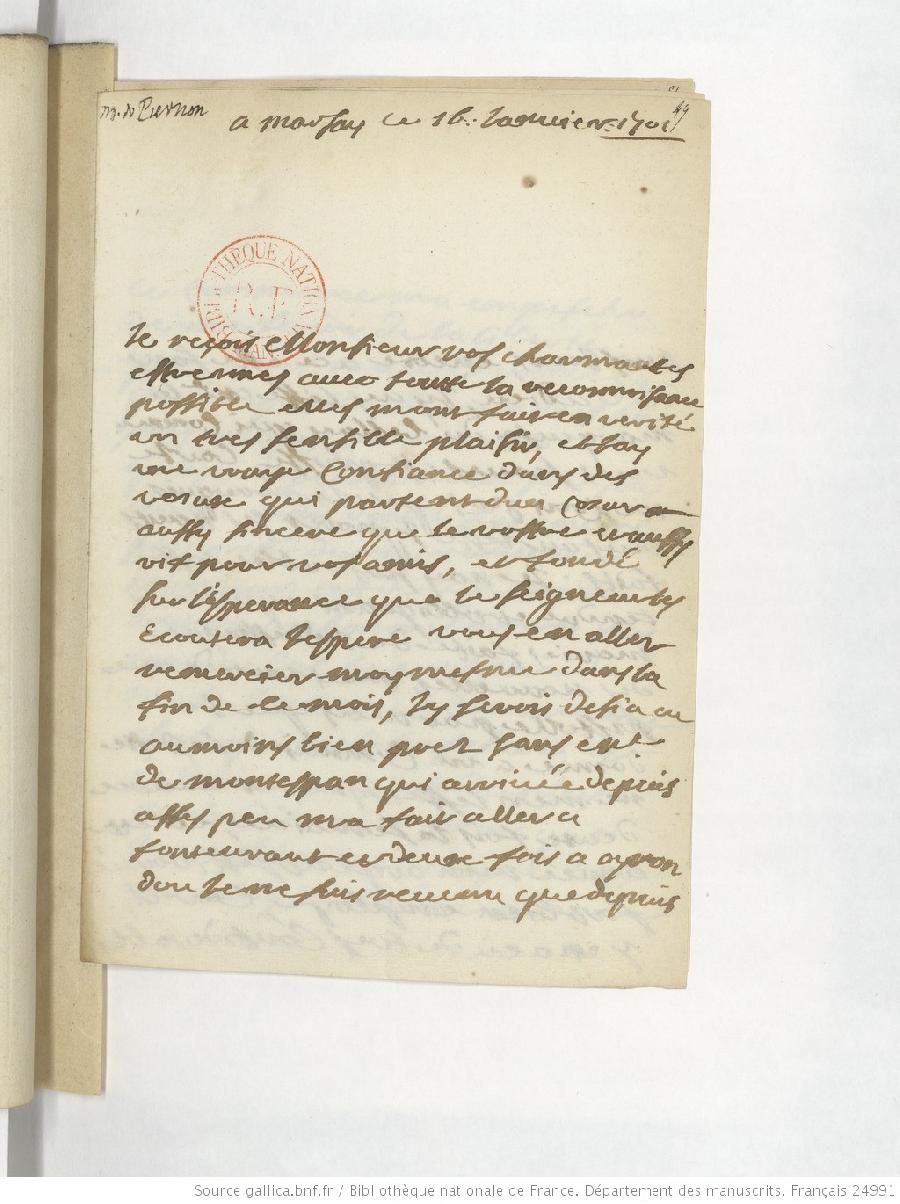 M. de Piernon
a marsay ce 16. Janvier 1701
49
BIBLIOTHÈQUE NATIONALE
R.F
MANUSCRITS
Je reçois Monsieur vos charmantes
estrennes avec toutte la reconnoissance
possible elles mont fait en verité
un tres sensible plaisir, et jay
une vraye confiance dans des
voeux qui partent dun coeur
aussy sincere que le vostre et aussy
vif pour vos amis, et fondé
sur lesperance que le seigneur les
Ecoutera Jespere vous en aller
remercier moy mesme dans la
fin de ce mois, Jy serois desia ou
au moins bien prez sans
de montespan qui arrivée depuis
assés peu ma fait aller a
fontevraut et deux fois a oyron
dou Je ne suis revenu que depuis
Source gallica.bnf.fr / Bibliothèque nationale de France. Département des manuscrits. Français 24991